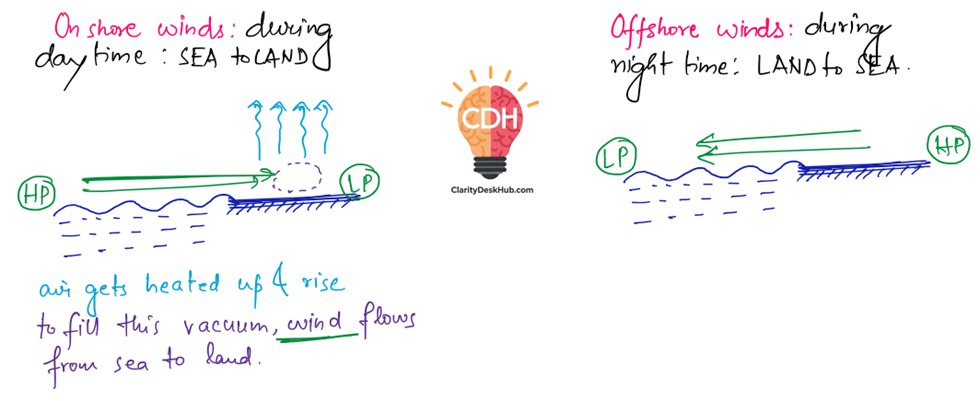 On shore winds: during
day time: SEA to LAND
HP
LP
air gets heated up & rise
to fill this vacuum, wind flows
from sea to land.
CDH
ClarityDeskHub.com
Offshore winds: during
night time: LAND to SEA.
LP
HP